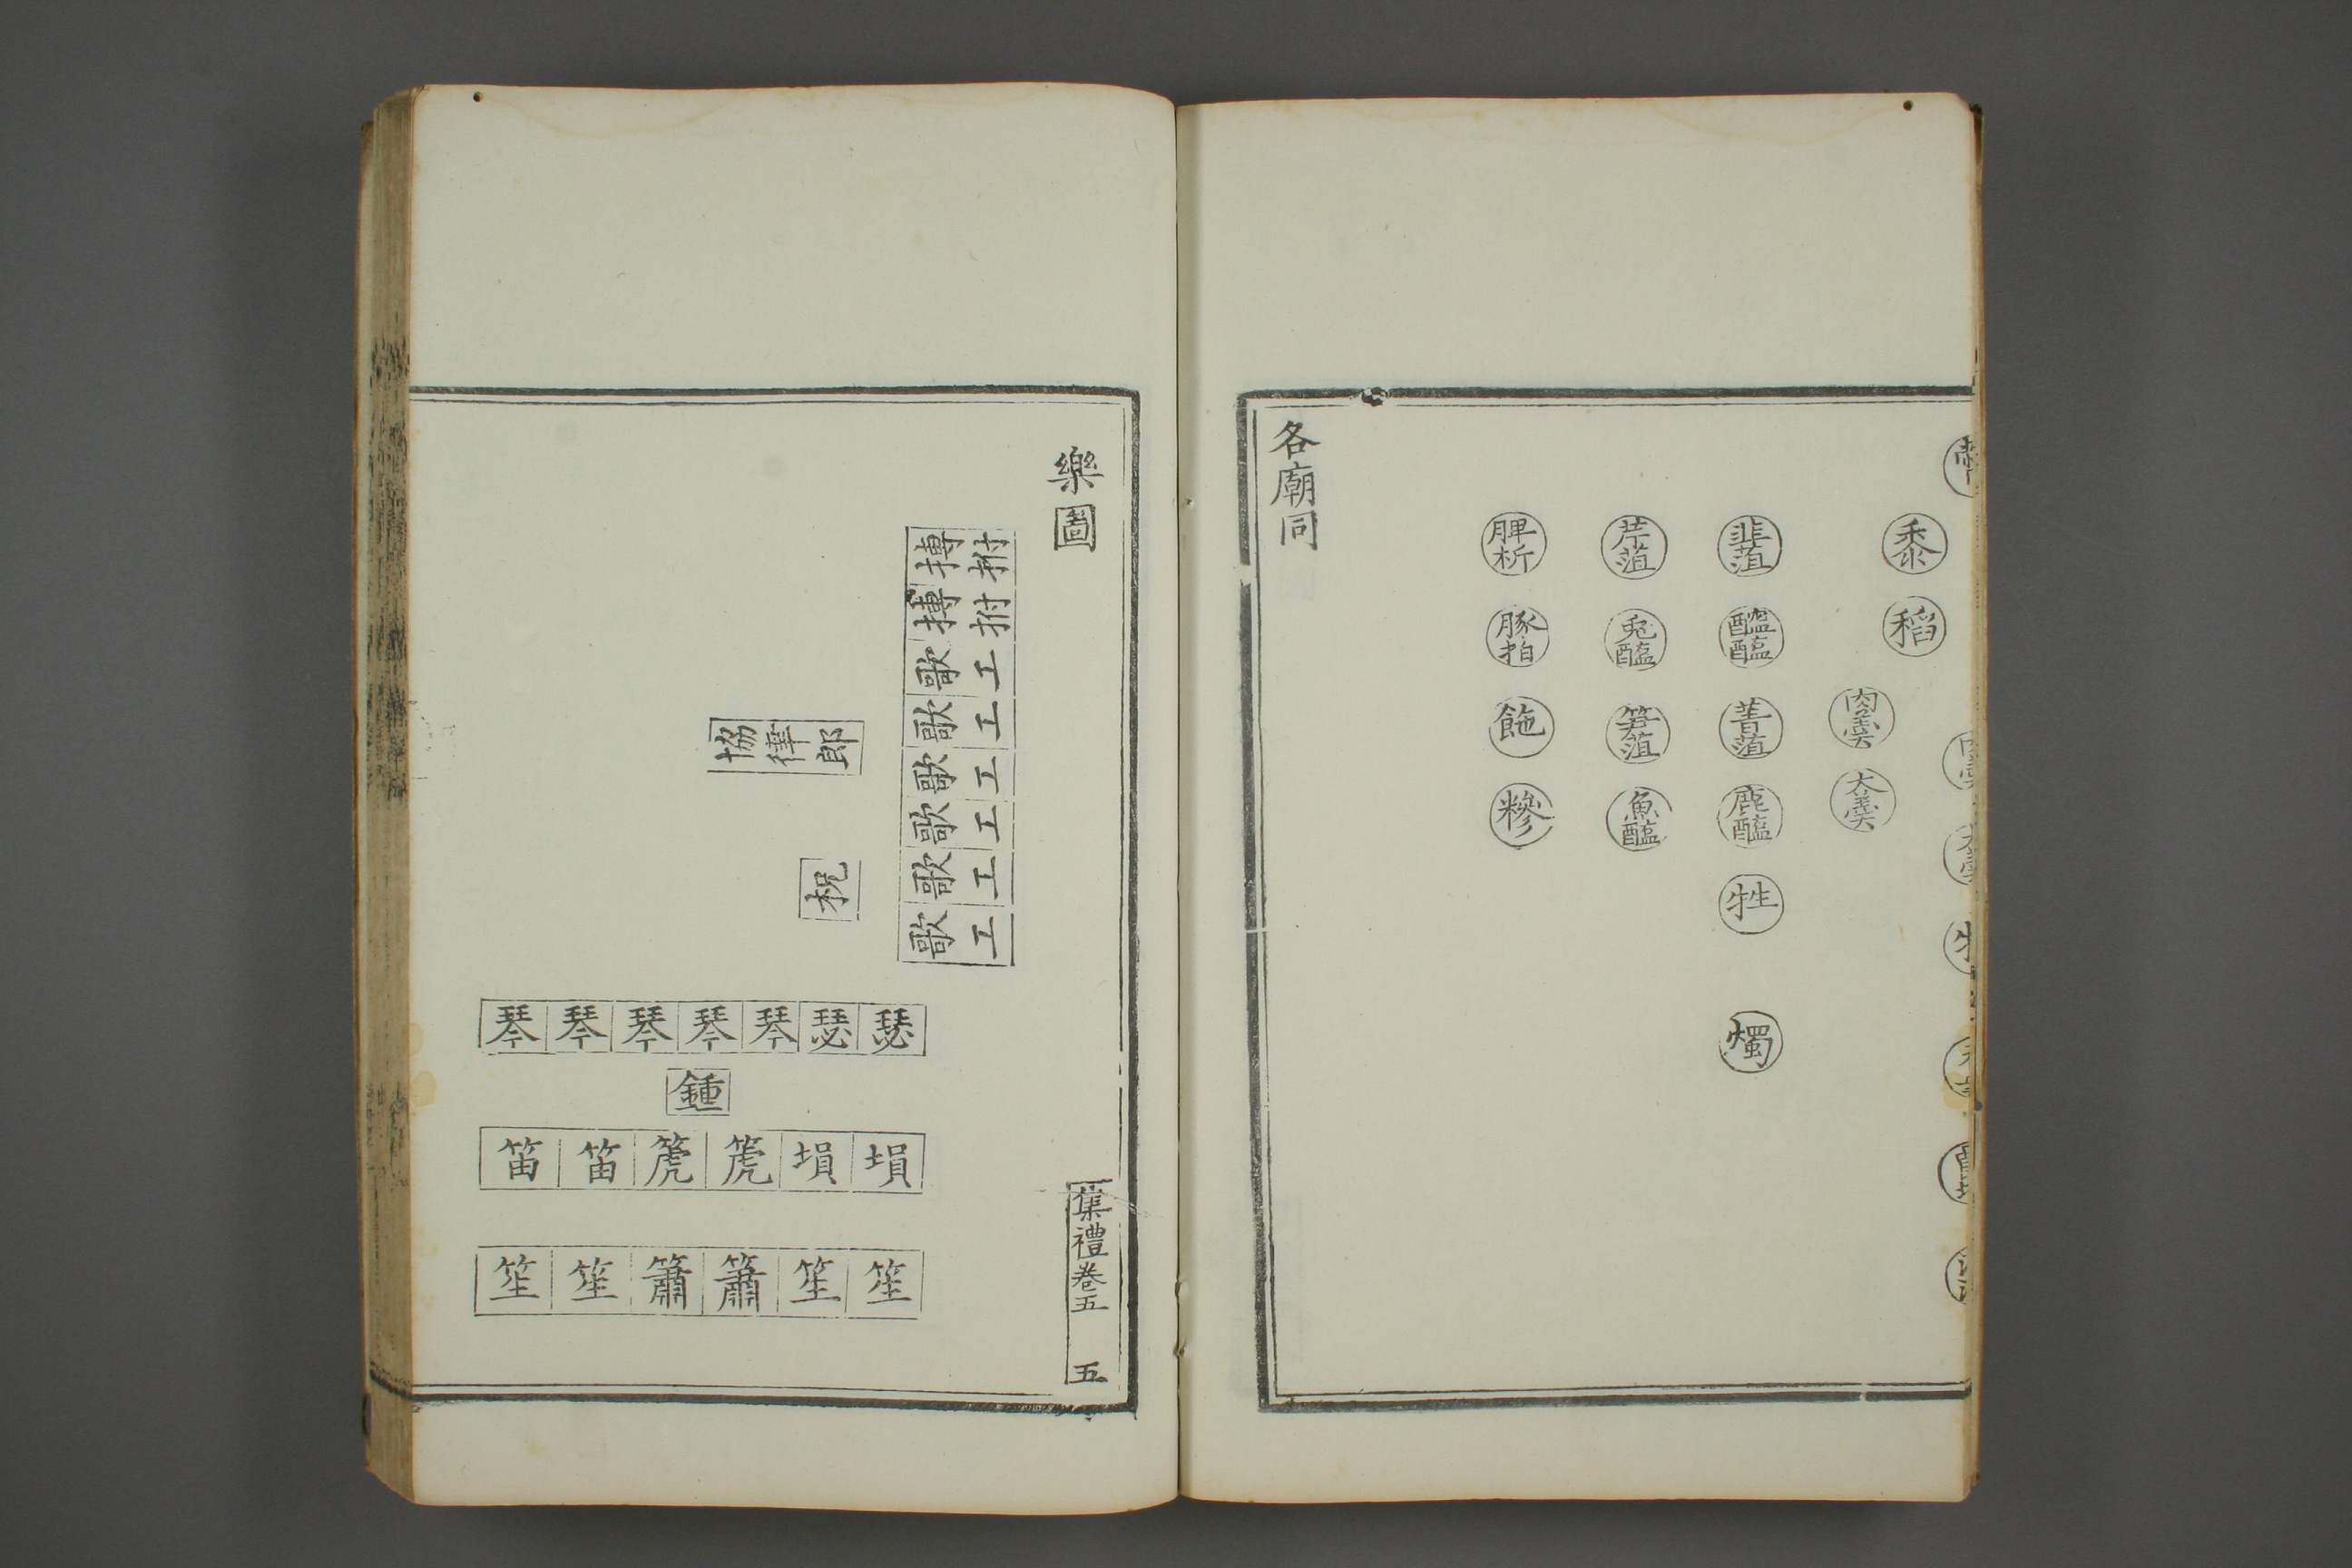 黍 稻
肉羹 大羹
韭菹 醓醢 菁菹 鹿醢 牲 燭
芹菹 兔醢 笋菹 魚醢
脾析 豚拍 糝
各廟同
樂圖
搏拊
搏拊
歌工
歌工
歌工
歌工
歌工
歌工
協律郎
柷
琴 琴 琴 琴 琴 瑟 瑟
鍾
笛 笛 箎 箎 塤 塤
笙 笙 簫 簫 笙 笙
集禮卷五 五